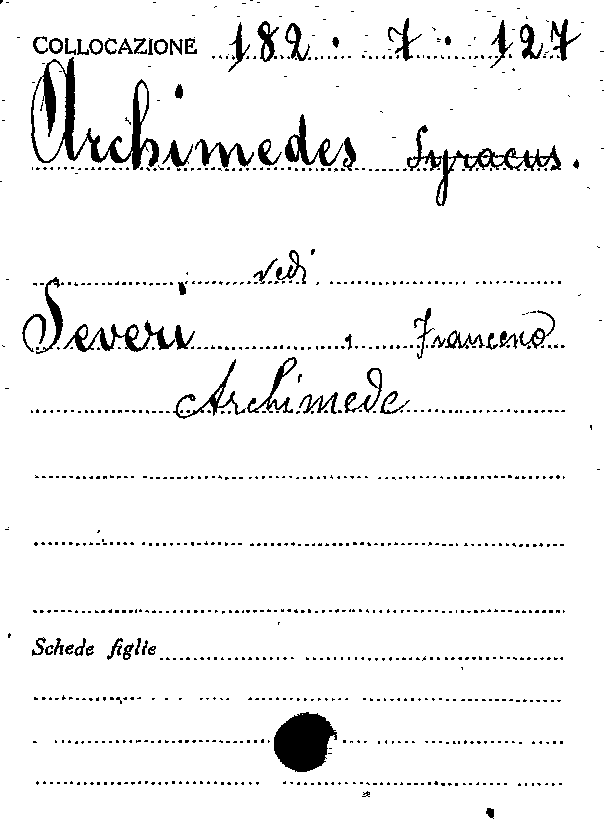 COLLOCAZIONE 182 · 7 · 127
Archimedes Syracus.
vedi
Severi , Francesco
Archimede
Schede figlie